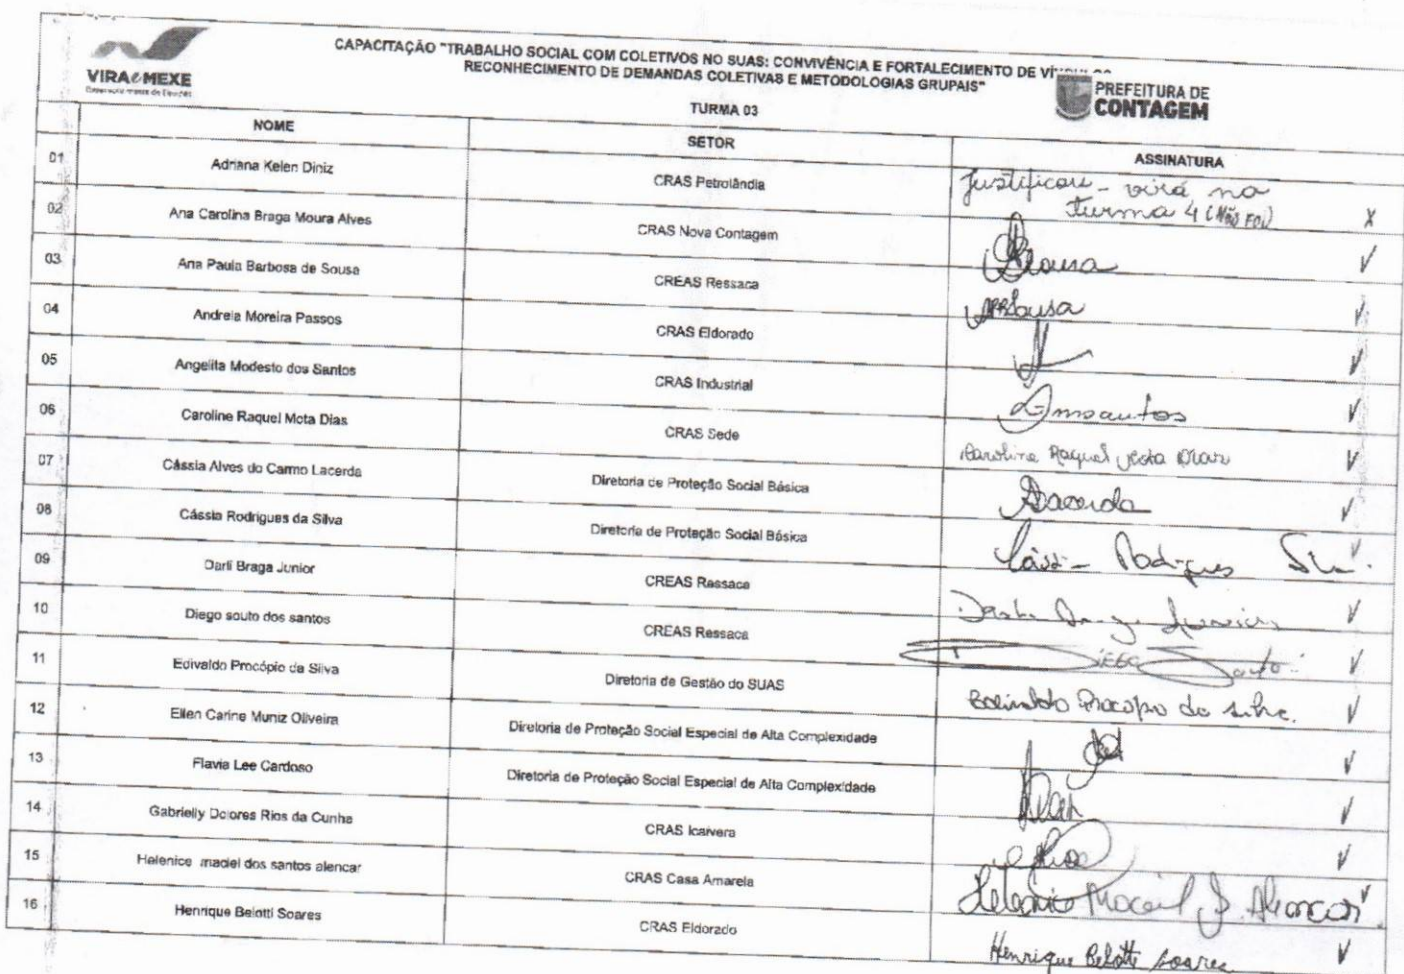 VIRAeMEXE
CAPACITAÇÃO "TRABALHO SOCIAL COM COLETIVOS NO SUAS: CONVIVÊNCIA E FORTALECIMENTO DE
RECONHECIMENTO DE DEMANDAS COLETIVAS E METODOLOGIAS GRUPAIS"
PREFEITURA DE
CONTAGEM
TURMA 03
NOME SETOR ASSINATURA
01 Adriana Kelen Diniz CRAS Petrolândia Justificou - virá na
turma 4 (Não FOI) X
02 Ana Carolina Braga Moura Alves CRAS Nova Contagem ✓
03 Ana Paula Barbosa de Sousa CREAS Ressaca APBSousa ✓
04 Andreia Moreira Passos CRAS Eldorado ✓
05 Angelita Modesto dos Santos CRAS Industrial Amsantos ✓
06 Caroline Raquel Mota Dias CRAS Sede Caroline Raquel Mota Dias ✓
07 Cássia Alves do Carmo Lacerda Diretoria de Proteção Social Básica Lacerda ✓
08 Cássia Rodrigues da Silva Diretoria de Proteção Social Básica Cássia Rodrigues ✓
09 Darli Braga Junior CREAS Ressaca Junior ✓
10 Diego souto dos santos CREAS Ressaca DIEGO ✓
11 Edivaldo Procópio da Silva Diretoria de Gestão do SUAS Edivaldo Procópio da Silva. ✓
12 Ellen Carine Muniz Oliveira Diretoria de Proteção Social Especial de Alta Complexidade ✓
13 Flavia Lee Cardoso Diretoria de Proteção Social Especial de Alta Complexidade ✓
14 Gabrielly Dolores Rios da Cunha CRAS Icaivera ✓
15 Helenice maciel dos santos alencar CRAS Casa Amarela Helenice Maciel S. Alencar ✓
16 Henrique Belotti Soares CRAS Eldorado Henrique Belotti Soares ✓